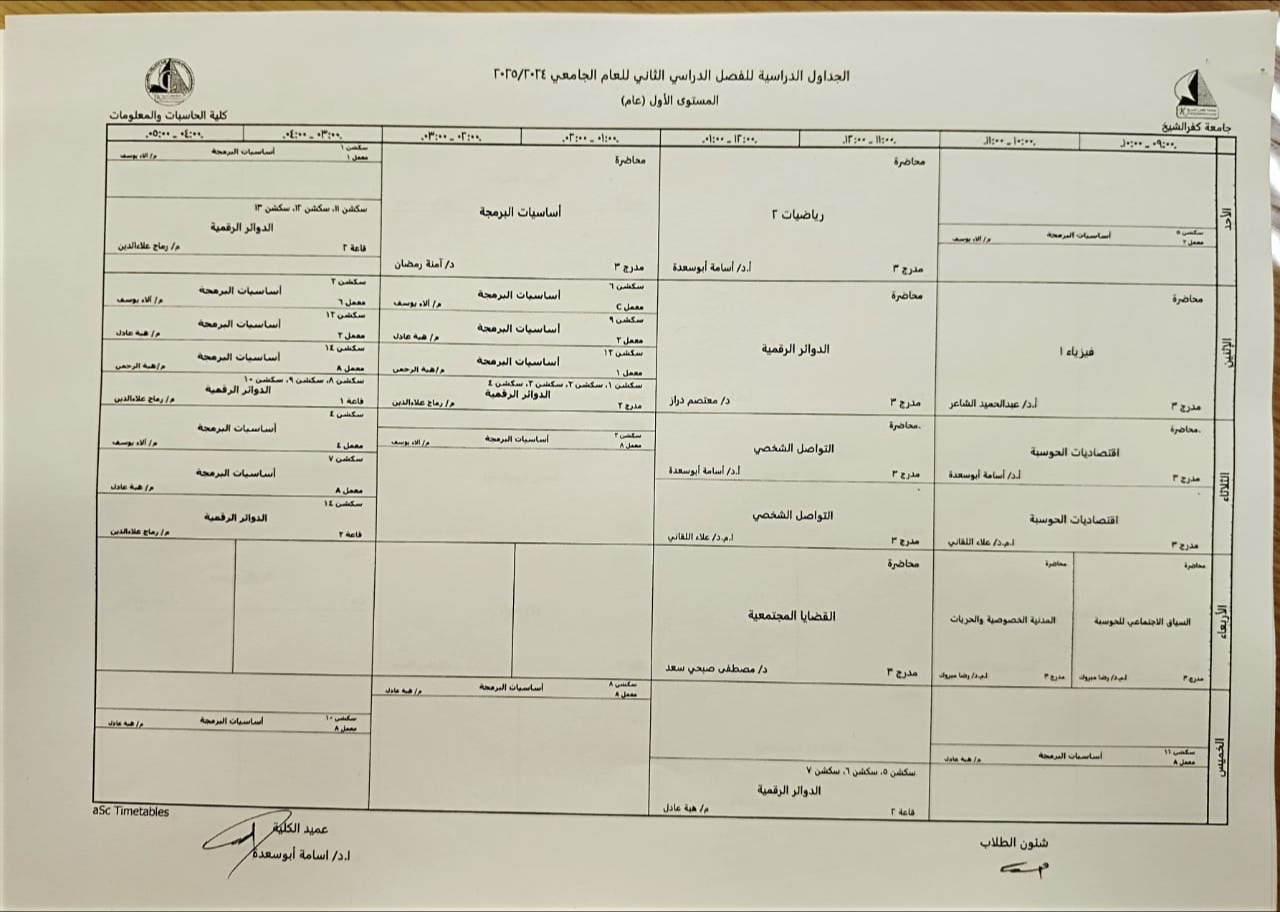 الجداول الدراسية للفصل الدراسي الثاني للعام الجامعي ٢٠٢٥/٢٠٢٤
المستوى الأول (عام)
جامعة كفرالشيخ
كلية الحاسبات والمعلومات
٠٩:٠٠ - ١٠:٠٠
١٠:٠٠ - ١١:٠٠
١١:٠٠ - ١٢:٠٠
١٢:٠٠ - ٠١:٠٠
٠١:٠٠ - ٠٢:٠٠
٠٢:٠٠ - ٠٣:٠٠
٠٣:٠٠ - ٠٤:٠٠
٠٤:٠٠ - ٠٥:٠٠
الأحد
سكشن ٥
أساسيات البرمجة
معمل ٢
م/ آلاء يوسف
محاضرة
رياضيات ٢
مدرج ٣
أ.د/ أسامة أبوسعدة
محاضرة
أساسيات البرمجة
مدرج ٣
د/ آمنة رمضان
سكشن ١
أساسيات البرمجة
معمل ١
م/ آلاء يوسف
سكشن ١١، سكشن ١٢، سكشن ١٣
الدوائر الرقمية
قاعة ٢
م/ رماج علاءالدين
الإثنين
محاضرة
فيزياء ١
مدرج ٣
أ.د/ عبدالحميد الشاعر
محاضرة
الدوائر الرقمية
مدرج ٣
د/ معتصم دراز
سكشن ٦
أساسيات البرمجة
معمل C
م/ آلاء يوسف
سكشن ٩
أساسيات البرمجة
معمل ٢
م/ هبة عادل
سكشن ١٢
أساسيات البرمجة
معمل ١
م/هبة الرحمن
سكشن ١، سكشن ٢، سكشن ٣، سكشن ٤
الدوائر الرقمية
مدرج ٢
م/ رماج علاءالدين
سكشن ٢
أساسيات البرمجة
معمل ٦
م/ آلاء يوسف
سكشن ١٣
أساسيات البرمجة
معمل ٢
م/ هبة عادل
سكشن ١٤
أساسيات البرمجة
معمل ٨
م/هبة الرحمن
سكشن ٨، سكشن ٩، سكشن ١٠
الدوائر الرقمية
قاعة ١
م/ رماج علاءالدين
الثلاثاء
محاضرة.
اقتصاديات الحوسبة
مدرج ٣
أ.د/ أسامة أبوسعدة
اقتصاديات الحوسبة
مدرج ٣
ا.م.د/ علاء اللقاني
محاضرة.
التواصل الشخصي
مدرج ٣
أ.د/ أسامة أبوسعدة
التواصل الشخصي
مدرج ٣
ا.م.د/ علاء اللقاني
سكشن ٣
أساسيات البرمجة
معمل ٨
م/ آلاء يوسف
سكشن ٤
أساسيات البرمجة
معمل ٤
م/ آلاء يوسف
سكشن ٧
أساسيات البرمجة
معمل ٨
م/ هبة عادل
سكشن ١٤
الدوائر الرقمية
قاعة ٢
م/ رماج علاءالدين
الأربعاء
محاضرة
السياق الاجتماعي للحوسبة
مدرج ٣
ا.م.د/ رضا مبروك
محاضرة
المدنية الخصوصية والحريات
مدرج ٣
ا.م.د/ رضا مبروك
محاضرة
القضايا المجتمعية
مدرج ٣
د/ مصطفى صبحي سعد
الخميس
سكشن ١١
أساسيات البرمجة
معمل ٨
م/ هبة عادل
سكشن ٥، سكشن ٦، سكشن ٧
الدوائر الرقمية
قاعة ٢
م/ هبة عادل
سكشن ٨
أساسيات البرمجة
معمل ٨
م/ هبة عادل
سكشن ١٠
أساسيات البرمجة
معمل ٨
م/ هبة عادل
aSc Timetables
شئون الطلاب
عميد الكلية
ا.د/ اسامة أبوسعدة